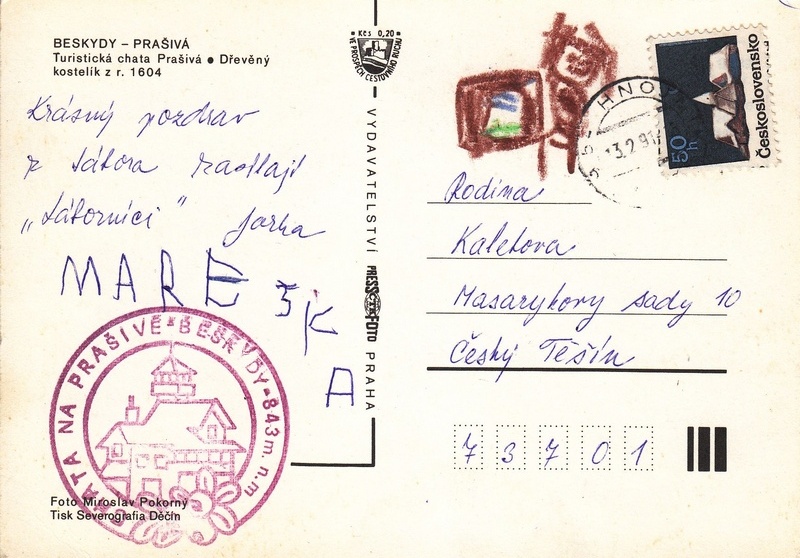 BESKYDY – PRAŠIVÁ
Turistická chata Prašivá ● Dřevěný
kostelík z r. 1604
Krásný pozdrav
z tábora zasílají
„táborníci" Jarka
MAREŠKA
Kčs 0,20
VE PROSPĚCH CESTOVNÍHO RUCHU
VYDAVATELSTVÍ PRESSFOTO PRAHA
ČTK
HNO
13.2.91
50h
Československo
Rodina
Kaletova
Masarykovy sady 10
Český Těšín
73701
CHATA NA PRAŠIVÉ • BESKYDY • 843 m.n.m
Foto Miroslav Pokorný
Tisk Severografia Děčín